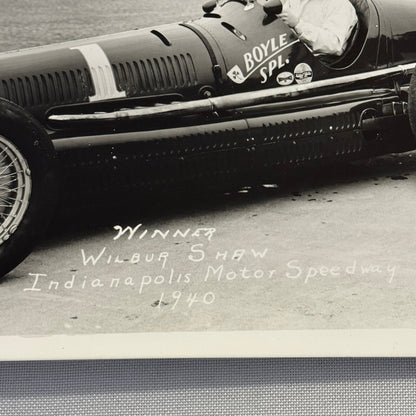 BOYLE
SPL.
WINNER
WILBUR SHAW
Indianapolis Motor Speedway
1940